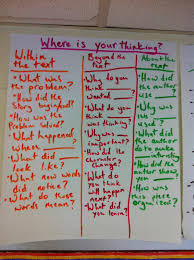 Where is your thinking?
Within
the text
• What was
the problem?
• How did the
story begin/end?
• How was the
Problem solved?
• What happened
when
• What did
look like?
• What new words
did notice?
• What do those
words mean?
Beyond the
text
• Why do you
think
wanted
• What do you
think was
thinking?
• Why was
important?
• How did the
character
change?
• What do
you think
will happen
next?
• What did
you learn?
About the
text
• How did
the author
use
• Why did
the author
use
• What did
the author
do to make
interesting
• How did the
author show, you
• How was
this piece
organized?